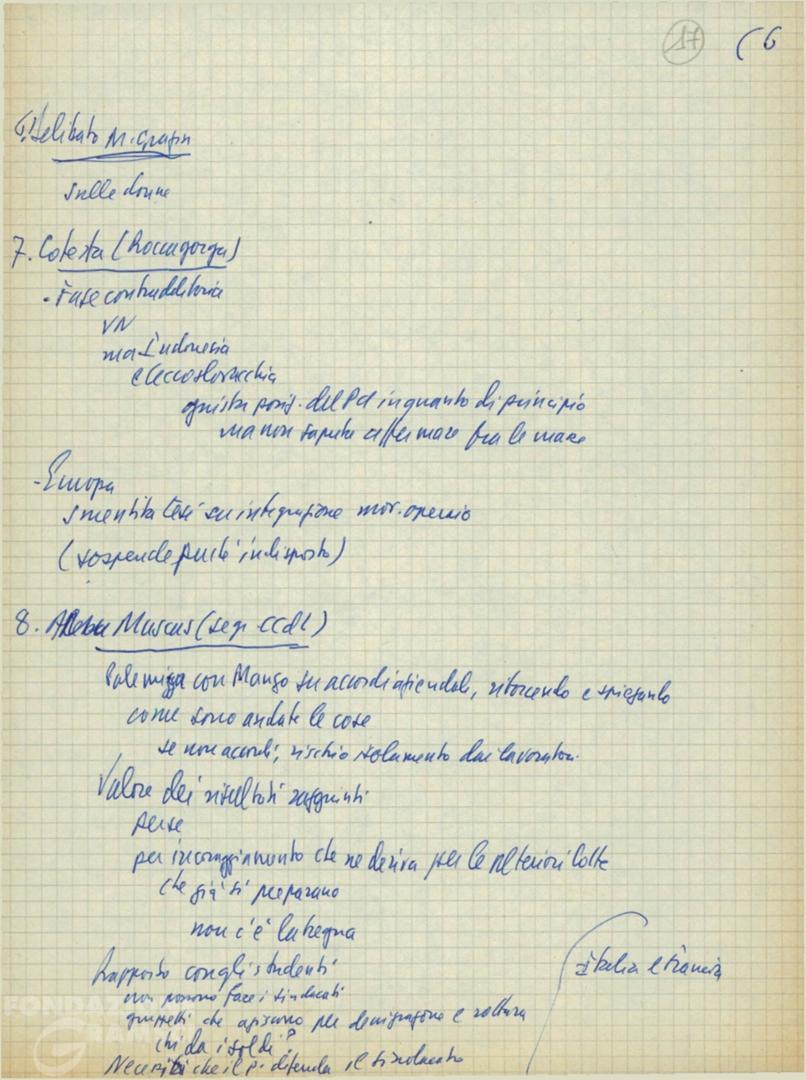 17 (6
6. Delibato M. Grazia
sulle donne
7. Cotesta (Roccagorga)
- Fase contradditoria
VN
ma Indonesia
Cecoslovacchia
giusta posiz. del Pci in quanto di principio
ma non saputa affermare fra le masse
- Europa
smentita tesi su integrazione mov. operaio
(sospende perché indisposto)
8. Muscas (segr. CCdL)
Polemizza con Mango su accordi aziendali, ritorcendo e spiegando
come sono andate le cose
se non accordi, rischio isolamento dai lavoratori
Valore dei risultati raggiunti
per se
per incoraggiamento che ne deriva per le ulteriori lotte
che già si preparano
non c'è la tregua
Rapporto con gli studenti
non possono fare i sindacati
gruppetti che agiscono per denigrazione e rottura
chi dà i soldi?
Necessità che il p. difenda il sindacato
Italia e Francia
FONDAZ
GRAM